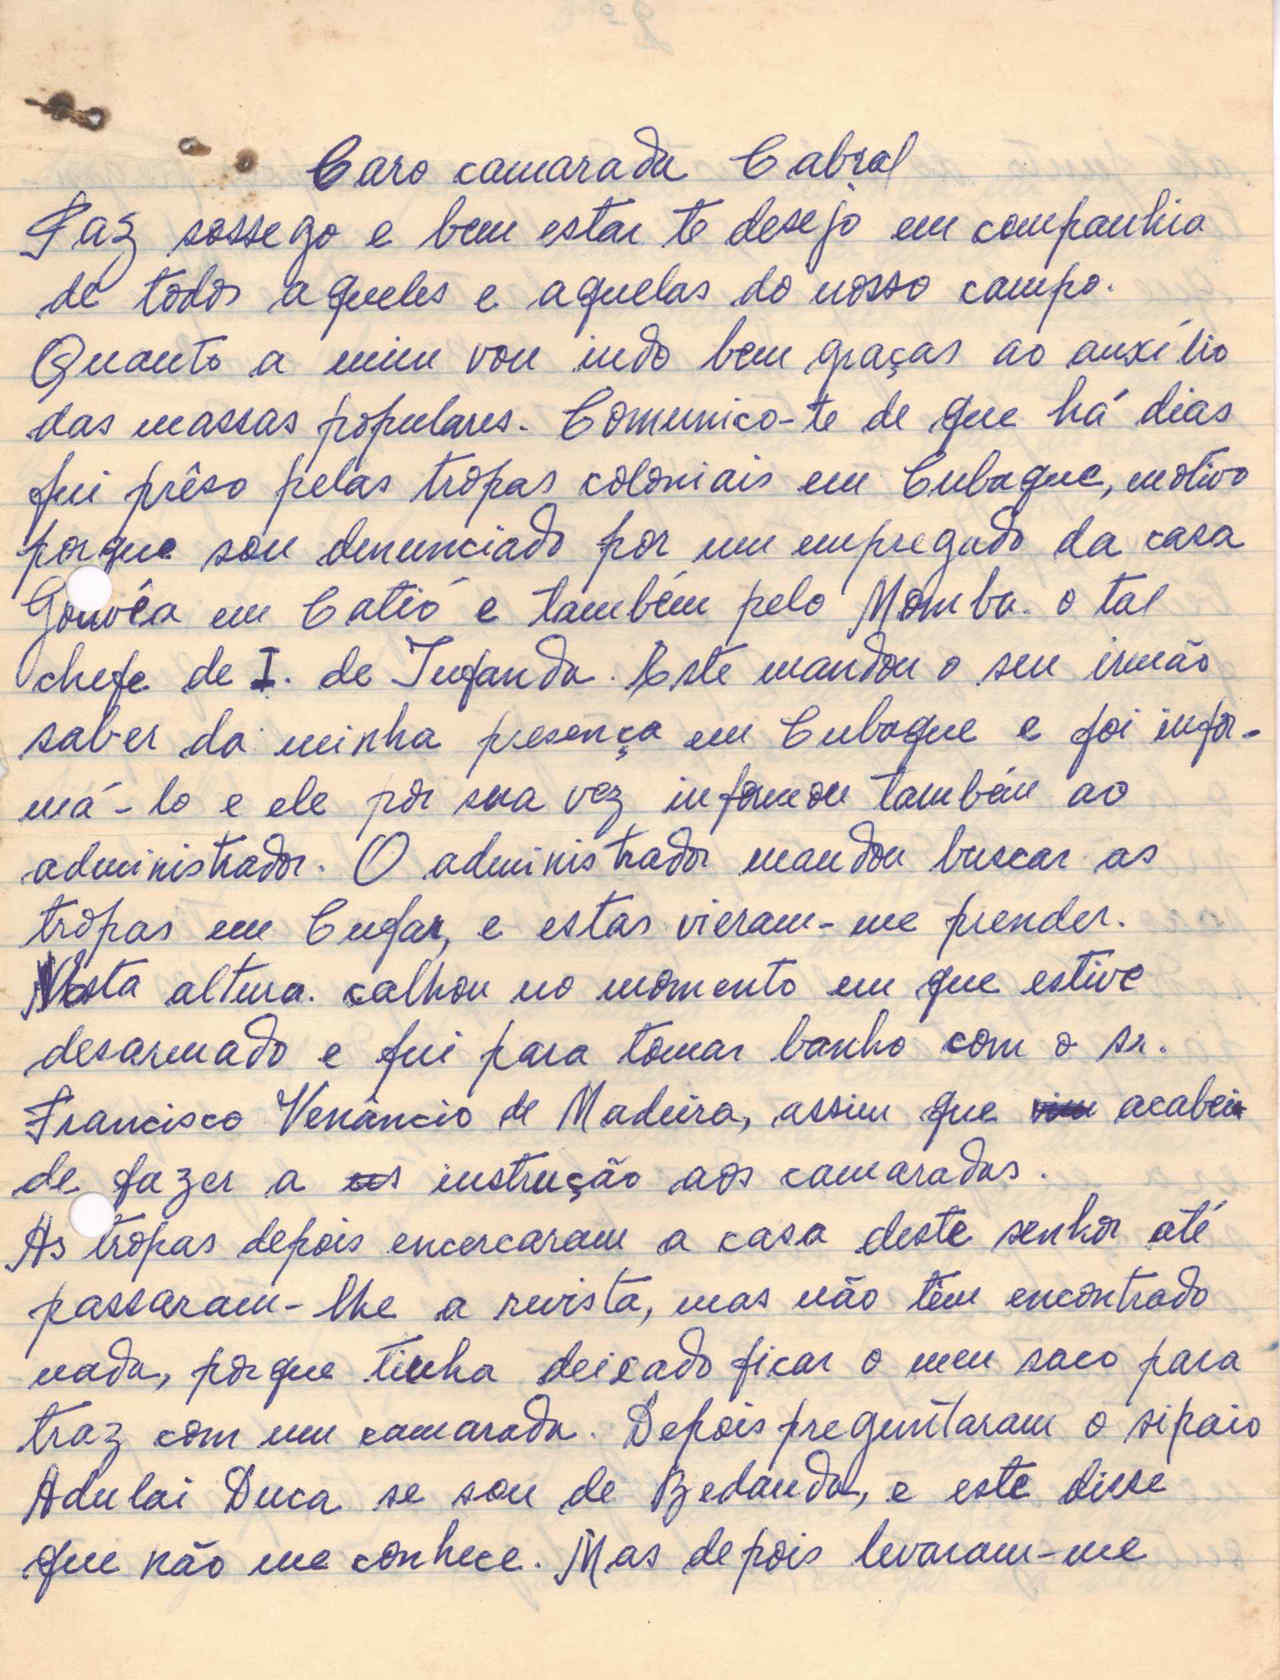 Caro camarada Cabral
Paz sossego e bem estar te desejo em companhia
de todos aqueles e aquelas do nosso campo.
Quanto a mim vou indo bem graças ao auxílio
das massas populares. Comunico-te de que há dias
fui prêso pelas tropas coloniais em Cubaque, motivo
porque sou denunciado por um empregado da casa
Gouvêa em Catió e também pelo Momba. o tal
chefe de I. de Iufanda. Este mandou o seu irmão
saber da minha presença em Cubaque e foi infor-
má-lo e ele por sua vez informou também ao
administrador. O administrador mandou buscar as
tropas em Cufar, e estas vieram-me prender.
Nesta altura. calhou no momento em que estive
desarmado e fui para tomar banho com o sr.
Francisco Venâncio de Madeira, assim que vim acabei
de fazer a us instrução aos camaradas.
As tropas depois encercaram a casa deste senhor até
passaram-lhe a revista, mas não têm encontrado
nada, porque tinha deixado ficar o meu saco para
traz com um camarada. Depois preguntaram o sipaio
Adulai Duca se sou de Bedanda, e este disse
que não me conhece. Mas depois levaram-me